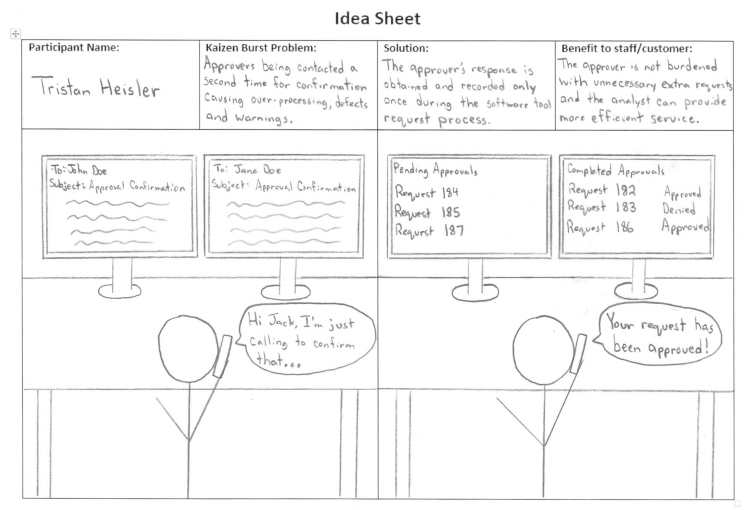 Idea Sheet
Participant Name:
Tristan Heisler
Kaizen Burst Problem:
Approvers being contacted a
second time for confirmation
causing over-processing, defects
and warnings.
Solution:
The approver's response is
obtained and recorded only
once during the software tool
request process.
Benefit to staff/customer:
The approver is not burdened
with unnecessary extra requests
and the analyst can provide
more efficient service.
To: John Doe
Subject: Approval Confirmation
To: Jane Doe
Subject: Approval Confirmation
Hi Jack, I'm just
calling to confirm
that...
Pending Approvals
Request 184
Request 185
Request 187
Completed Approvals
Request 182 Approved
Request 183 Denied
Request 186 Approved
Your request has
been approved!